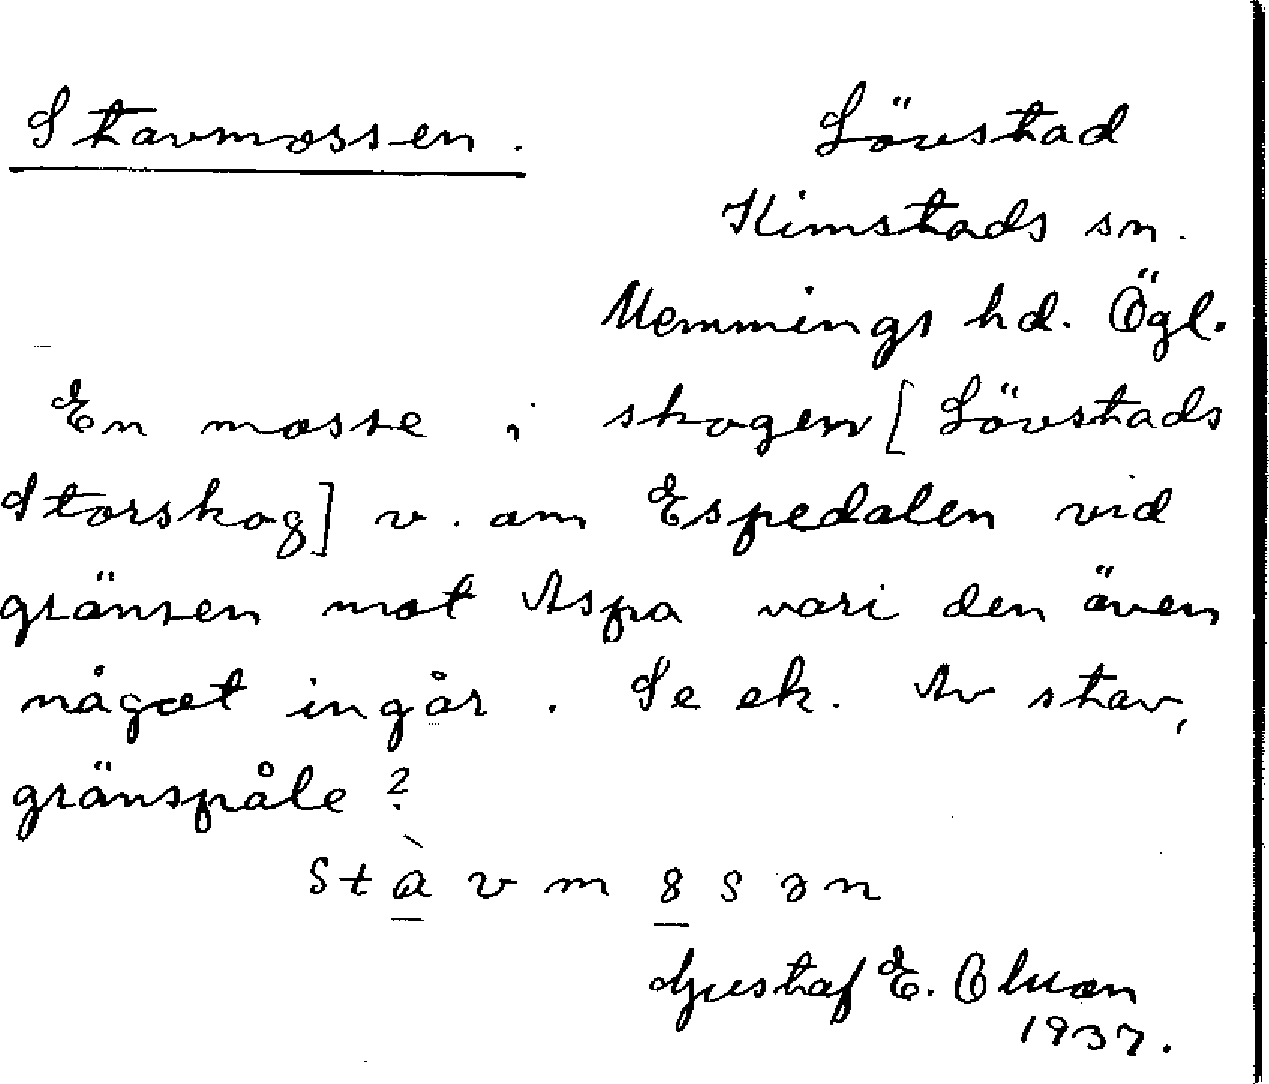 Stavmossen.
Lövstad
Kimstads sn.
Memmings hd. Ögl.
En mosse i skogen [Lövstads
Storskog] v. om Espedalen vid
gränsen mot Aspa vari den även
något ingår. Se ek. Av stav,
gränspåle?
stàvm8sən
Gustaf E. Olsson
1937.